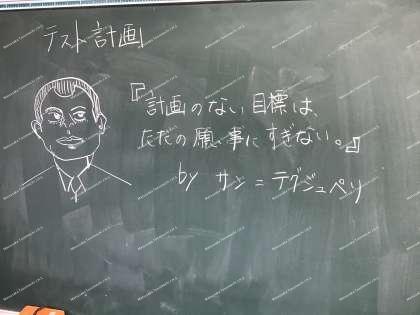 テスト計画
『計画のない目標は、
ただの願い事にすぎない。』
by サン=テグジュペリ